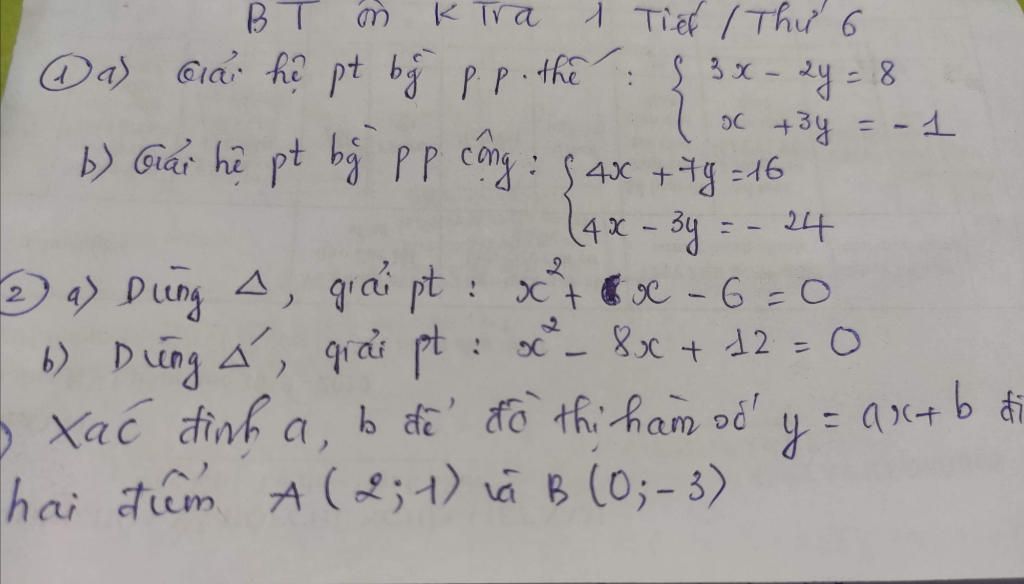 BT ôn KTra 1 Tiết / Thứ 6
① a) Giải hệ pt bg̀ p.p.thế : { 3x - 2y = 8
x + 3y = -1
b) Giải hệ pt bg̀ pp cộng : { 4x + 7y = 16
4x - 3y = - 24
② a) Dùng Δ, giải pt : x² + x - 6 = 0
b) Dùng Δ', giải pt : x² - 8x + 12 = 0
) Xác định a, b để đồ thị hàm số y = ax + b đi
hai điểm A (2;1) và B (0;-3)